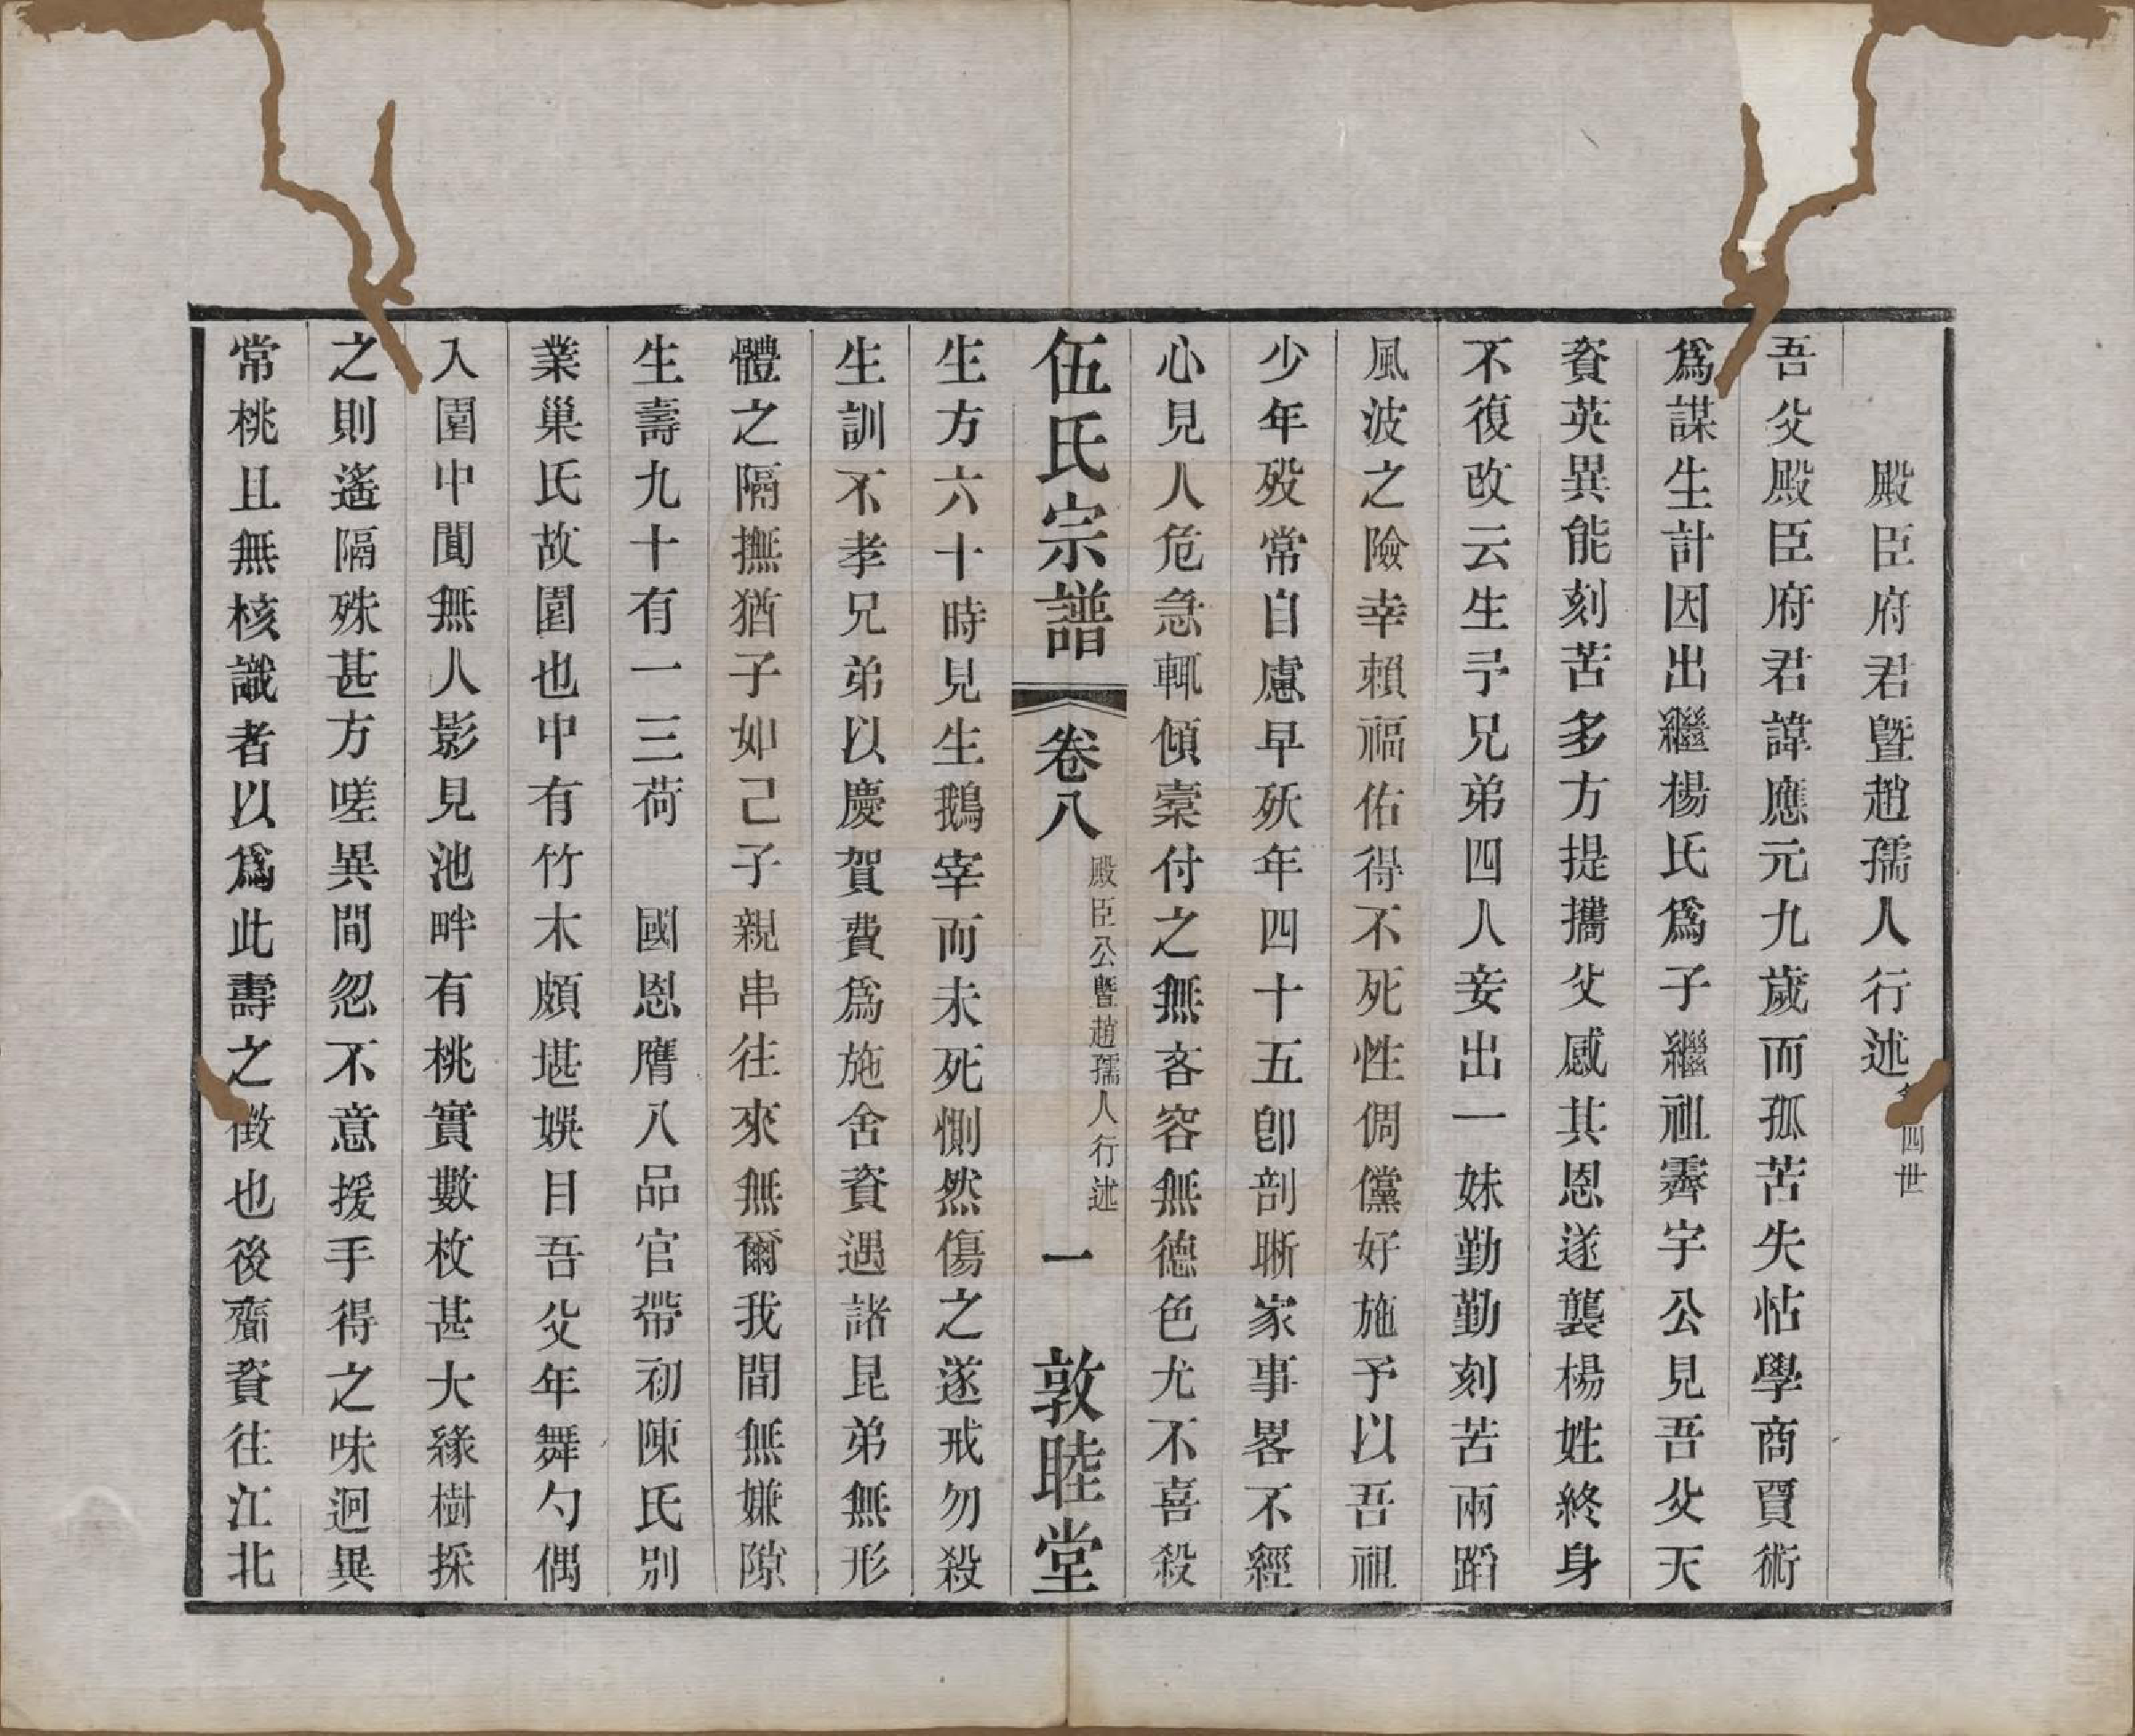 殿臣府君曁趙孺人行述 四世
吾父殿臣府君諱應元九歲而孤苦失怙學商賈術
爲謀生計因出繼楊氏爲子繼祖霽宇公見吾父天
資英異能刻苦多方提攜父感其恩遂襲楊姓終身
不復改云生予兄弟四人妾出一妹勤勤刻苦兩蹈
風波之險幸賴福佑得不死性倜儻好施予以吾祖
少年歿常自慮早殀年四十五卽剖晰家事畧不經
心見人危急輒傾橐付之無吝容無德色尤不喜殺
伍氏宗譜 卷八 殿臣公曁趙孺人行述 一 敦睦堂
生方六十時見生鵝宰而未死惻然傷之遂戒勿殺
生訓不孝兄弟以慶賀費爲施舍資遇諸昆弟無形
體之隔撫猶子如己子親串往來無爾我間無嫌隙
生壽九十有一三荷 國恩膺八品官帶初陳氏別
業巢氏故園也中有竹木頗堪娛目吾父年舞勺偶
入園中闃無人影見池畔有桃實數枚甚大緣樹採
之則遙隔殊甚方嗟異間忽不意援手得之味迥異
常桃且無核識者以爲此壽之徵也後齎資往江北